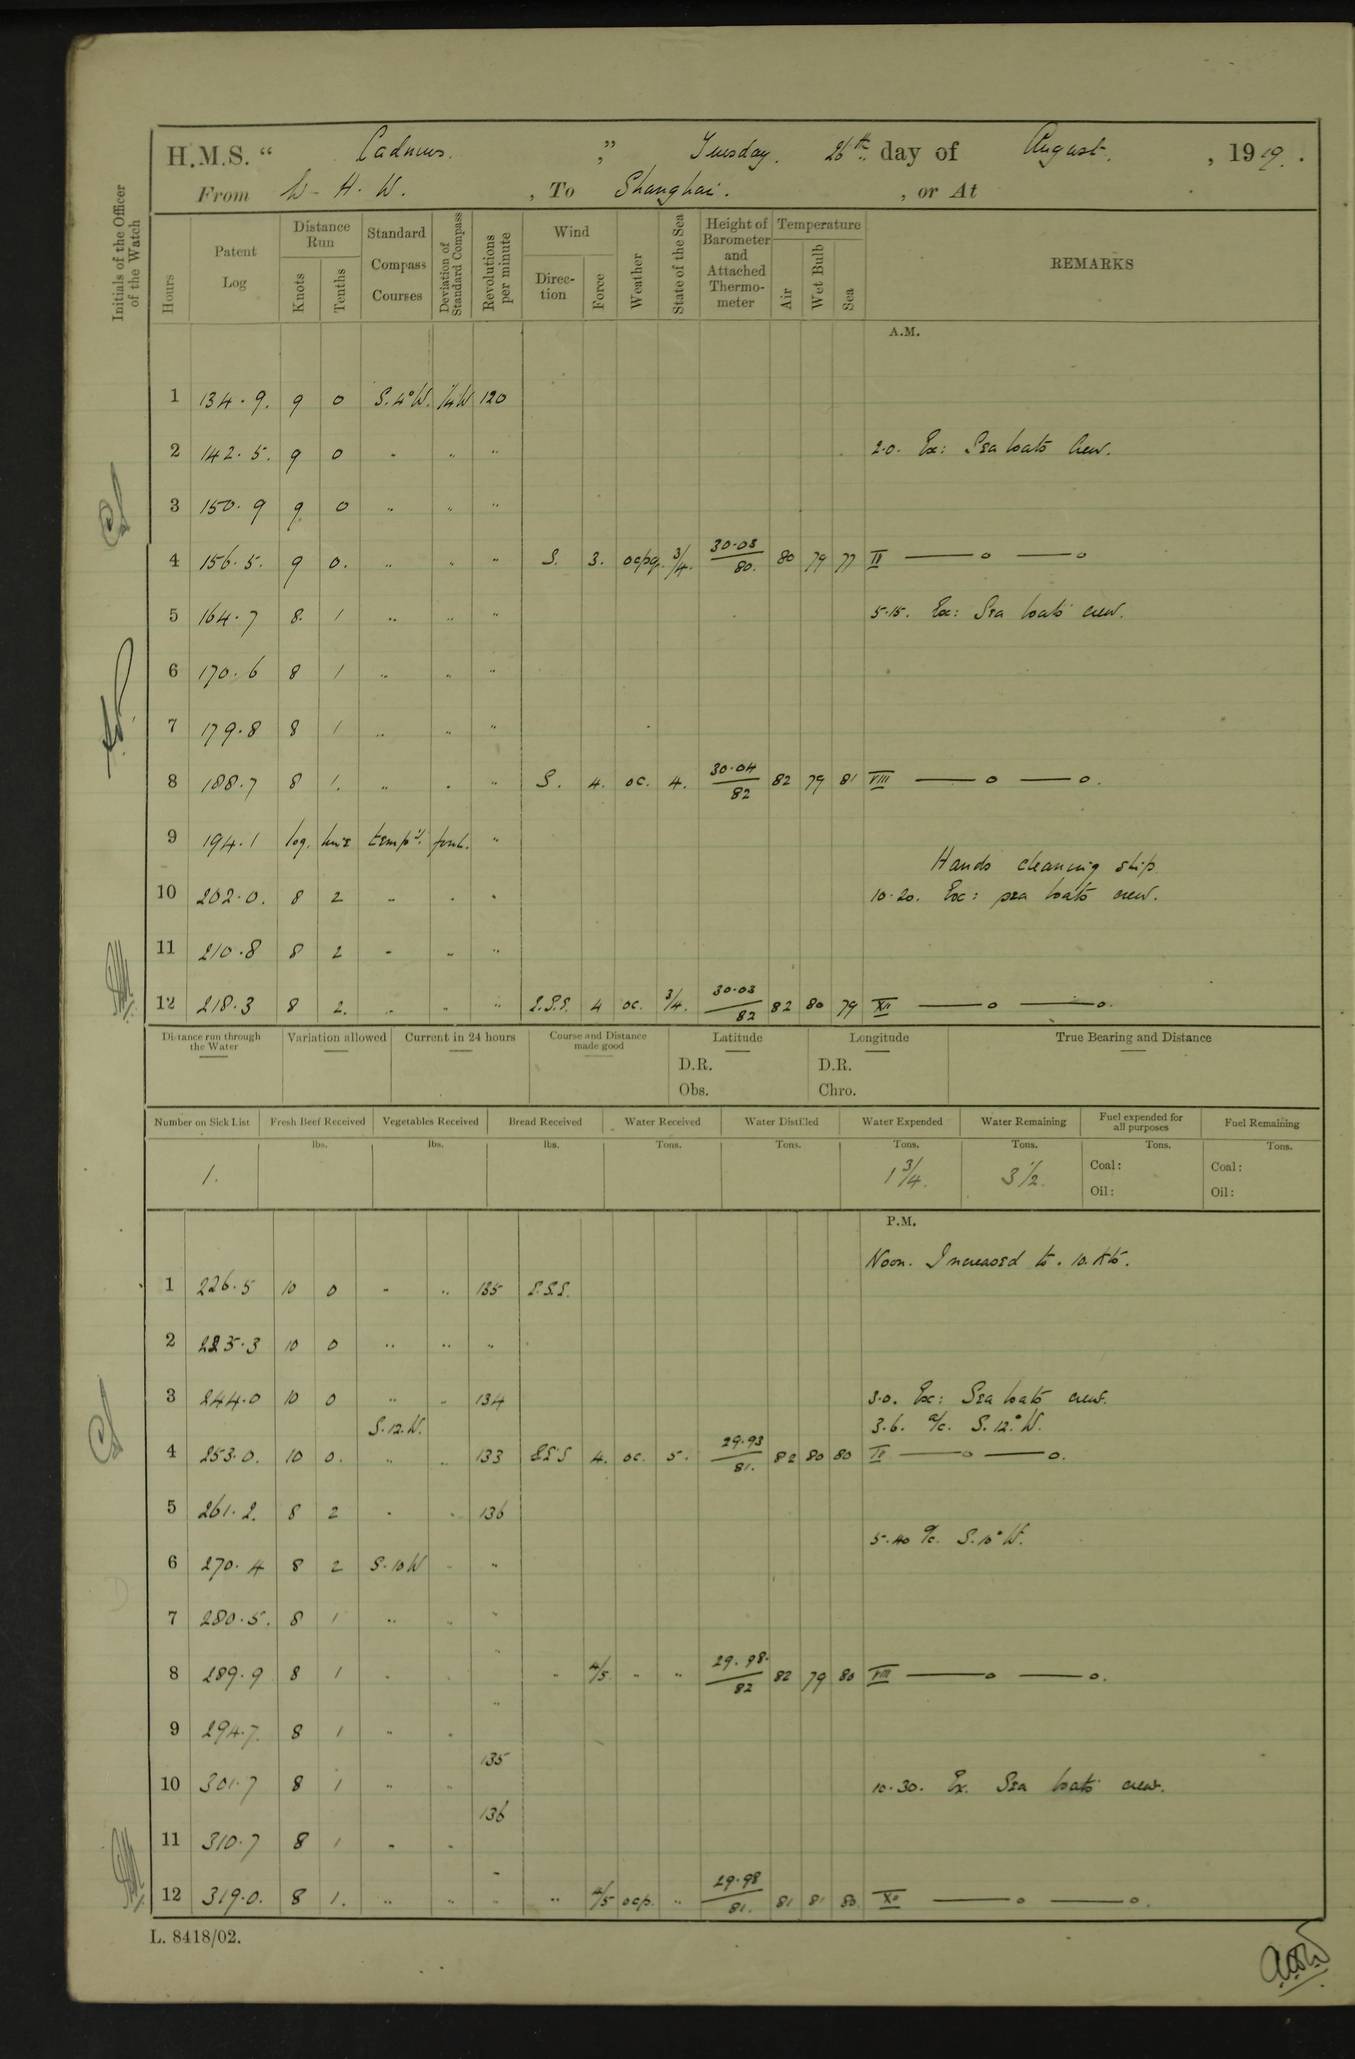 H.M.S. “ Cadmus. ,” Tuesday. 26th day of August. , 19 19.
From W-H.W. , To Shanghai. , or At
Initials of the Officer of the Watch
Hours Patent Log Distance Run Knots Tenths Standard Compass Courses Deviation of Standard Compass Revolutions per minute Wind Direction Force Weather State of the Sea Height of Barometer and Attached Thermometer Temperature Air Wet Bulb Sea REMARKS
A.M.
1 134.9. 9 0 S.4°W. ¼W 120
2 142.5. 9 0 " " " 2.0. Ex: Sea boats Crew.
3 150.9 9 0 " " "
4 156.5. 9 0. " " " S. 3. ocpq. 3/4. 30.03/80. 80 79 77 IV —— o —— o
5 164.7 8. 1 " " " 5.15. Ex: Sea boats crew.
6 170.6 8 1 " " "
7 179.8 8 1 " " "
8 188.7 8 1. " " " S. 4. oc. 4. 30.04/82 82 79 81 VIII —— o —— o.
9 194.1 log. line temp'y. foul. "
Hands cleaning ship
10 202.0. 8 2 " " " 10.20. Ex: sea boats crew.
11 210.8 8 2 " " "
12 218.3 8 2. " " " S.S.E. 4 oc. 3/4. 30.03/82 82 80 79 XII —— o —— o.
Distance run through the Water Variation allowed Current in 24 hours Course and Distance made good Latitude Longitude True Bearing and Distance
D.R. D.R.
Obs. Chro.
Number on Sick List Fresh Beef Received Vegetables Received Bread Received Water Received Water Distilled Water Expended Water Remaining Fuel expended for all purposes Fuel Remaining
lbs. lbs. lbs. Tons. Tons. Tons. Tons. Tons. Tons.
1. 1 3/4. 3 1/2. Coal: Coal:
Oil: Oil:
P.M.
Noon. Increased to. 10. Kts.
1 226.5 10 0 " " 135
2 235.3 10 0 " " "
3 244.0 10 0 " " 134 3.0. Ex: Sea boats crew.
S.12.W. 3.6. a/c. S.12°W.
4 253.0. 10 0. " " 133 4. oc. 5. 29.93/81. 82 80 80 IV —— o —— o.
5 261.2. 8 2 " " 136
5.40 a/c. S.10°W.
6 270.4 8 2 S.10W " "
7 280.5. 8 1 " " "
8 289.9 8 1 " " " 4/5 " " 29.98./82 82 79 80 VIII —— o —— o.
9 294.7. 8 1 " " "
10 301.7 8 1 " " 135 10.30. Ex. Sea boats crew.
11 310.7 8 1 " " 136
12 319.0. 8 1. " " " " 4/5 ocp. " 29.98/81. 81 81 80. XII —— o —— o.
L. 8418/02.